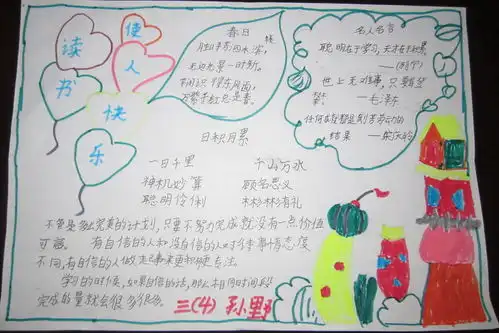 读书
使人
快
乐
春日
胜日寻
无边光景一时新。
等闲识得东风面,
万紫千红总是春。
名人名言
聪明在于学习,天才在于积累
世上无难事,只要登
攀
——毛泽东
任何成就都是刻苦劳动的
结果
日积月累
一日千里 千山万水
神机妙算 顾名思义
聪明伶俐 彬彬有礼
不管是多么完美的计划,只要不努力完成就没有一点价值
可言。 有自信的人和没自信的人对待事情态度
不同,有自信的人做起事来更积极专注
学习的时候,如果自信的话,那么相同时间段
完成的量就会很多很多。
三(4) 孙野